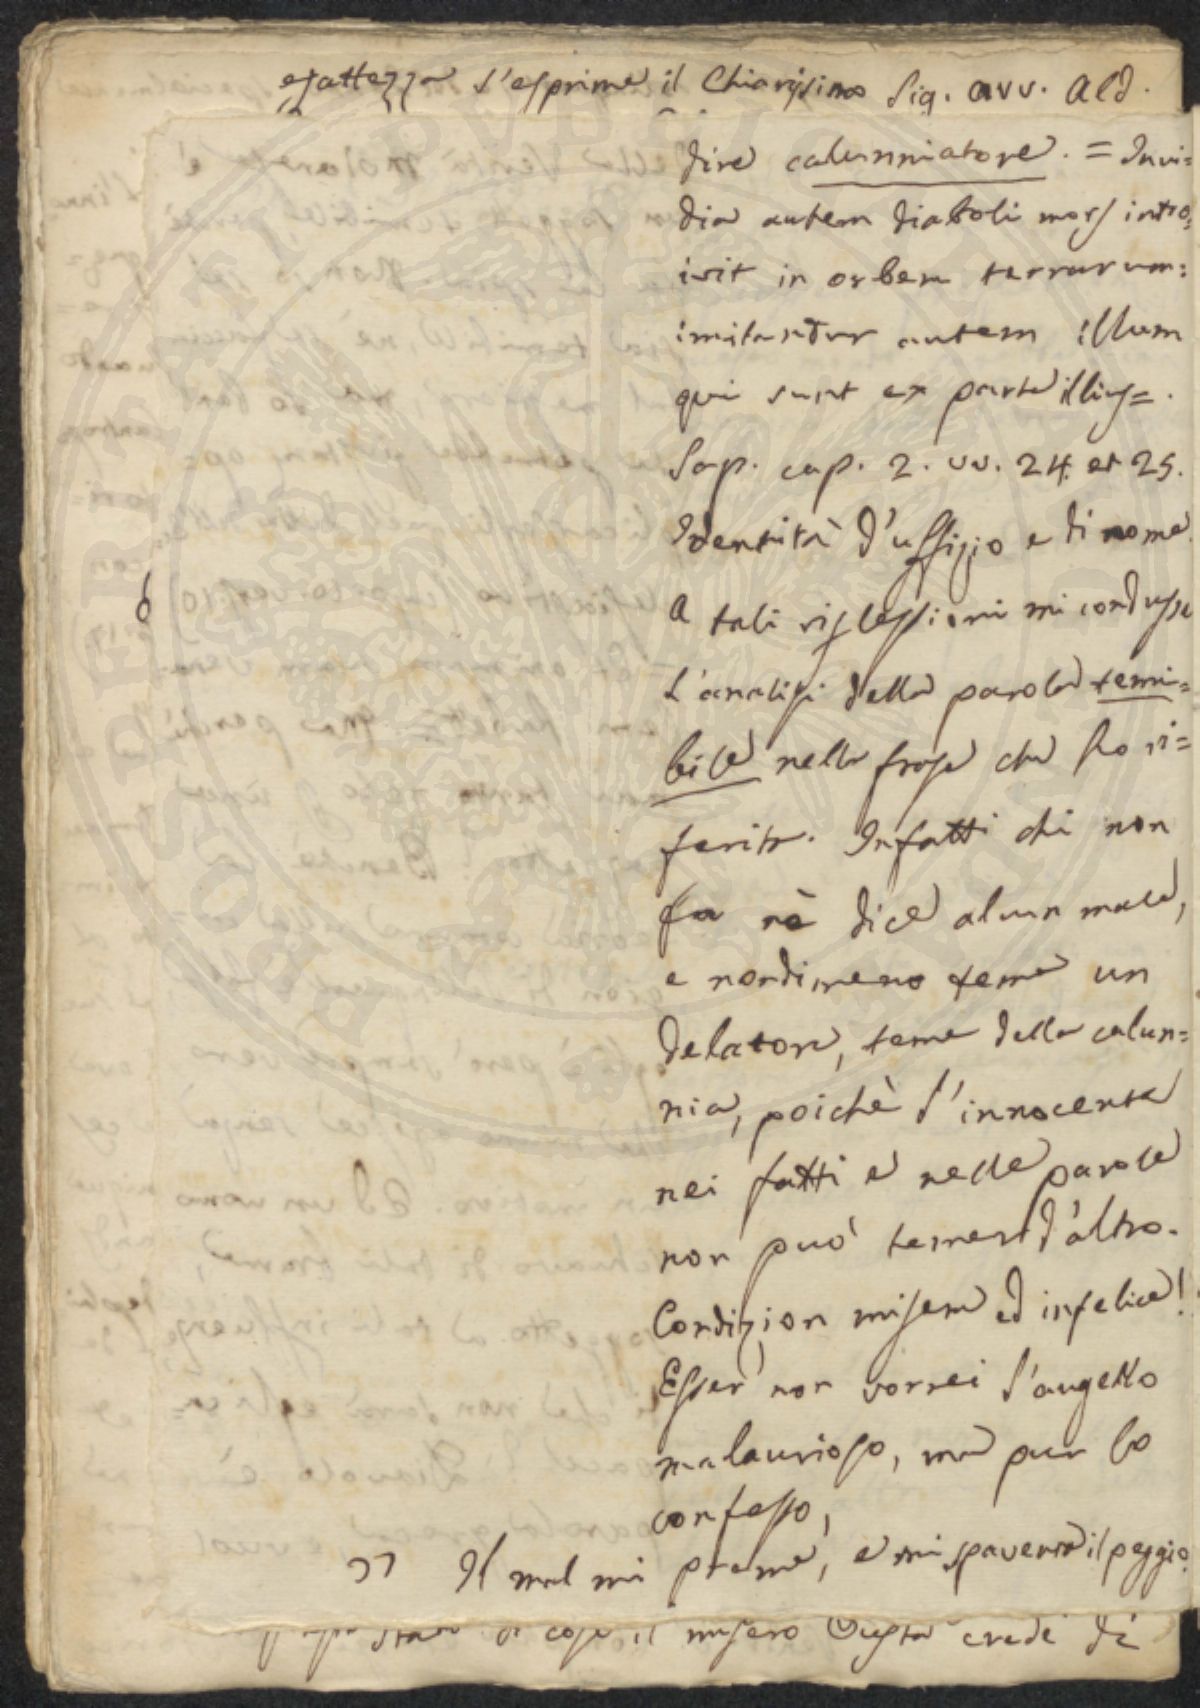 esattezza s'esprime il Chiarissimo Sig. avv. Ald.
dire calunniatore. = Invi=
dia autem diaboli mors intro=
ivit in orbem terrarum:
imitantur autem illum
qui sunt ex parte illius=.
Sap. cap. 2. vv. 24. et 25.
Identità d'uffizio e di nome.
A tali riflessioni mi condusse
l'analisi della parola temi=
bile nella frase che ho ri=
ferito. Infatti chi non
fa nè dice alcun male,
e nondimeno teme un
delatore, teme della calun=
nia, poichè l'innocente
nei fatti e nelle parole
non può temer d'altro.
Condizion misera ed infelice!
Esser non vorrei l'augello
malaurioso, ma pur lo
confesso,
" Il mal mi preme, e mi spaventa il peggio.
stato di cose il misero crede di